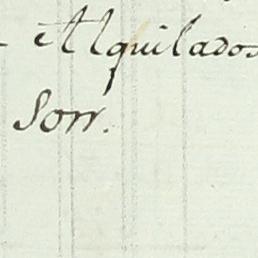 Alquilados
Son.